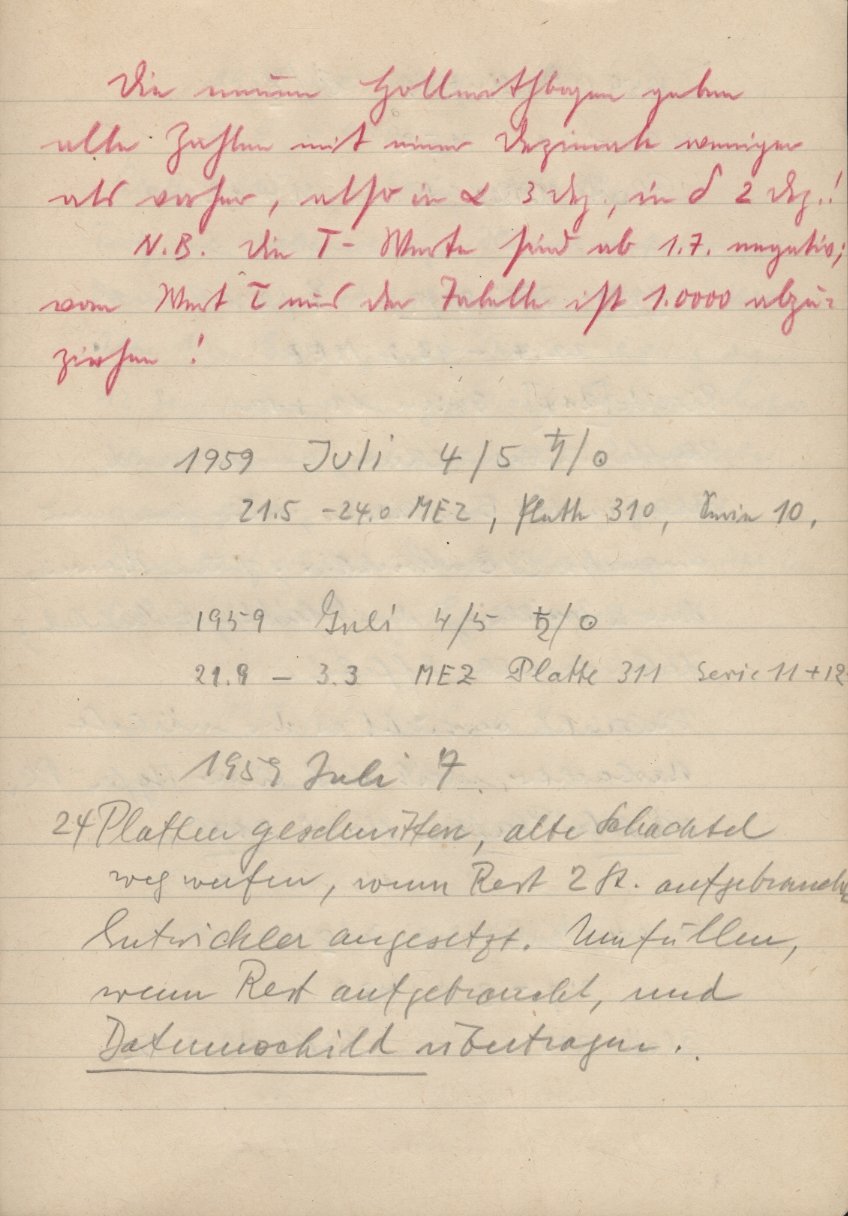 Die neuen Hollerithbogen geben
alle Zahlen mit einer Dezimale weniger
als vorher, also in α 3 Dez., in δ 2 Dez.!
N.B. Die T-Werte sind ab 1.7. negativ;
vom Wert T aus der Tabelle ist 1.0000 abzu-
ziehen!
1959 Juli 4/5 ♄/☉
21.5 - 24.0 MEZ, Platte 310, Serie 10,
1959 Juli 4/5 ♄/☉
21.9 - 3.3 MEZ Platte 311 Serie 11+12
1959 Juli 7.
24 Platten geschnitten, alte Schachtel
weg werfen, wenn Rest 2 St. aufgebraucht
Entwickler angesetzt. Umfüllen,
wenn Rest aufgebraucht, und
Datumschild übertragen.